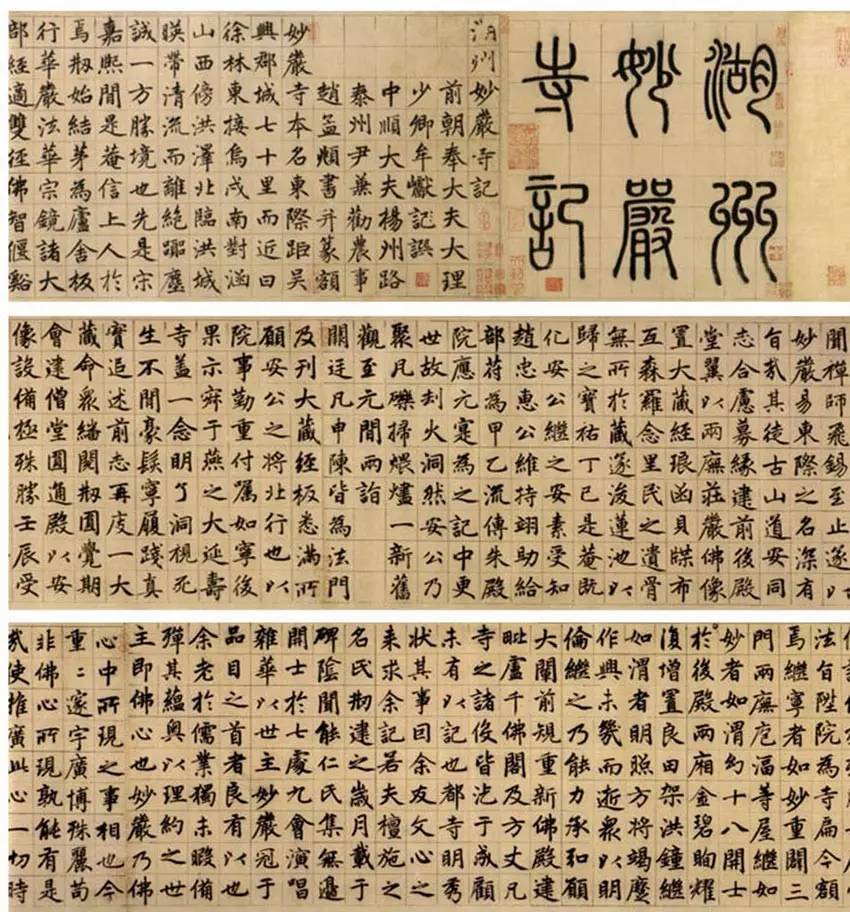 湖州
妙嚴
寺記
湖州妙嚴寺記
前朝奉大夫大理
少卿牟巘記譔
中順大夫楊州路
泰州尹兼勸農事
趙孟頫書并篆額
妙嚴寺本名東際距吳
興郡城七十里而近曰
徐林東接烏戍南對涵
山西傍洪澤北臨洪城
暎帶清流而離絕囂塵
誠一方勝境也先是宋
嘉熙間是菴信上人於
焉刱始結茅為廬舍板
行華嚴法華宗鏡諸大
部經適雙徑佛智偃谿
聞禪師飛錫至止遂以
妙嚴易東際之名深有
旨哉其徒古山道安同
志合慮募緣建前後殿
堂翼以兩廡莊嚴佛像
置大藏經琅凾貝牒布
互森羅念里民之遺骨
無所於藏遂浚蓮池以
歸之寶祐丁巳是菴既
化安公繼之安素受知
趙忠惠公維持翊助給
部符為甲乙流傳朱殿
院應元寔為之記中更
世故刦火洞然安公乃
聚凡礫掃煨燼一新舊
觀至元間兩詣
闕廷凡申陳皆為法門
及刊大藏經板悉滿所
願安公之將北行也以
院事勤重付囑如寧後
果示寂于燕之大延壽
寺蓋一念明了洞視死
生不閒豪髮寧履踐真
實追述前志再庋一大
藏命眾繙閱刱圓覺期
會建僧堂圓通殿以安
像設備極殊勝壬辰受
法旨陞院為寺扁今額
焉繼寧者如妙重闢三
門兩廡庖湢等屋繼如
妙者如渭約十八開士
於後殿兩廂金碧眴耀
復增置良田架洪鐘繼
如渭者明照方將竭麼
作興未幾而逝眾以明
倫繼之乃能力承和願
大闡前規重新佛殿建
毗盧千佛閣及方丈凡
寺之諸役皆汔于成顧
未有以記也都寺明秀
狀其事囙余友文心之
来求余記若夫檀施之
名氏刱建之歲月載于
碑陰聞能仁氏集無邊
開士於七處九會演唱
雜華以世主妙嚴冠于
品目之首者良有以也
余老於儒業獨未暇備
殫其蘊奧以理約之世
主即佛心也妙嚴乃佛
心中所現之事相也今
重〻邃宇廣博殊麗苟
非佛心所現孰能有是
哉使推廣此心一切時